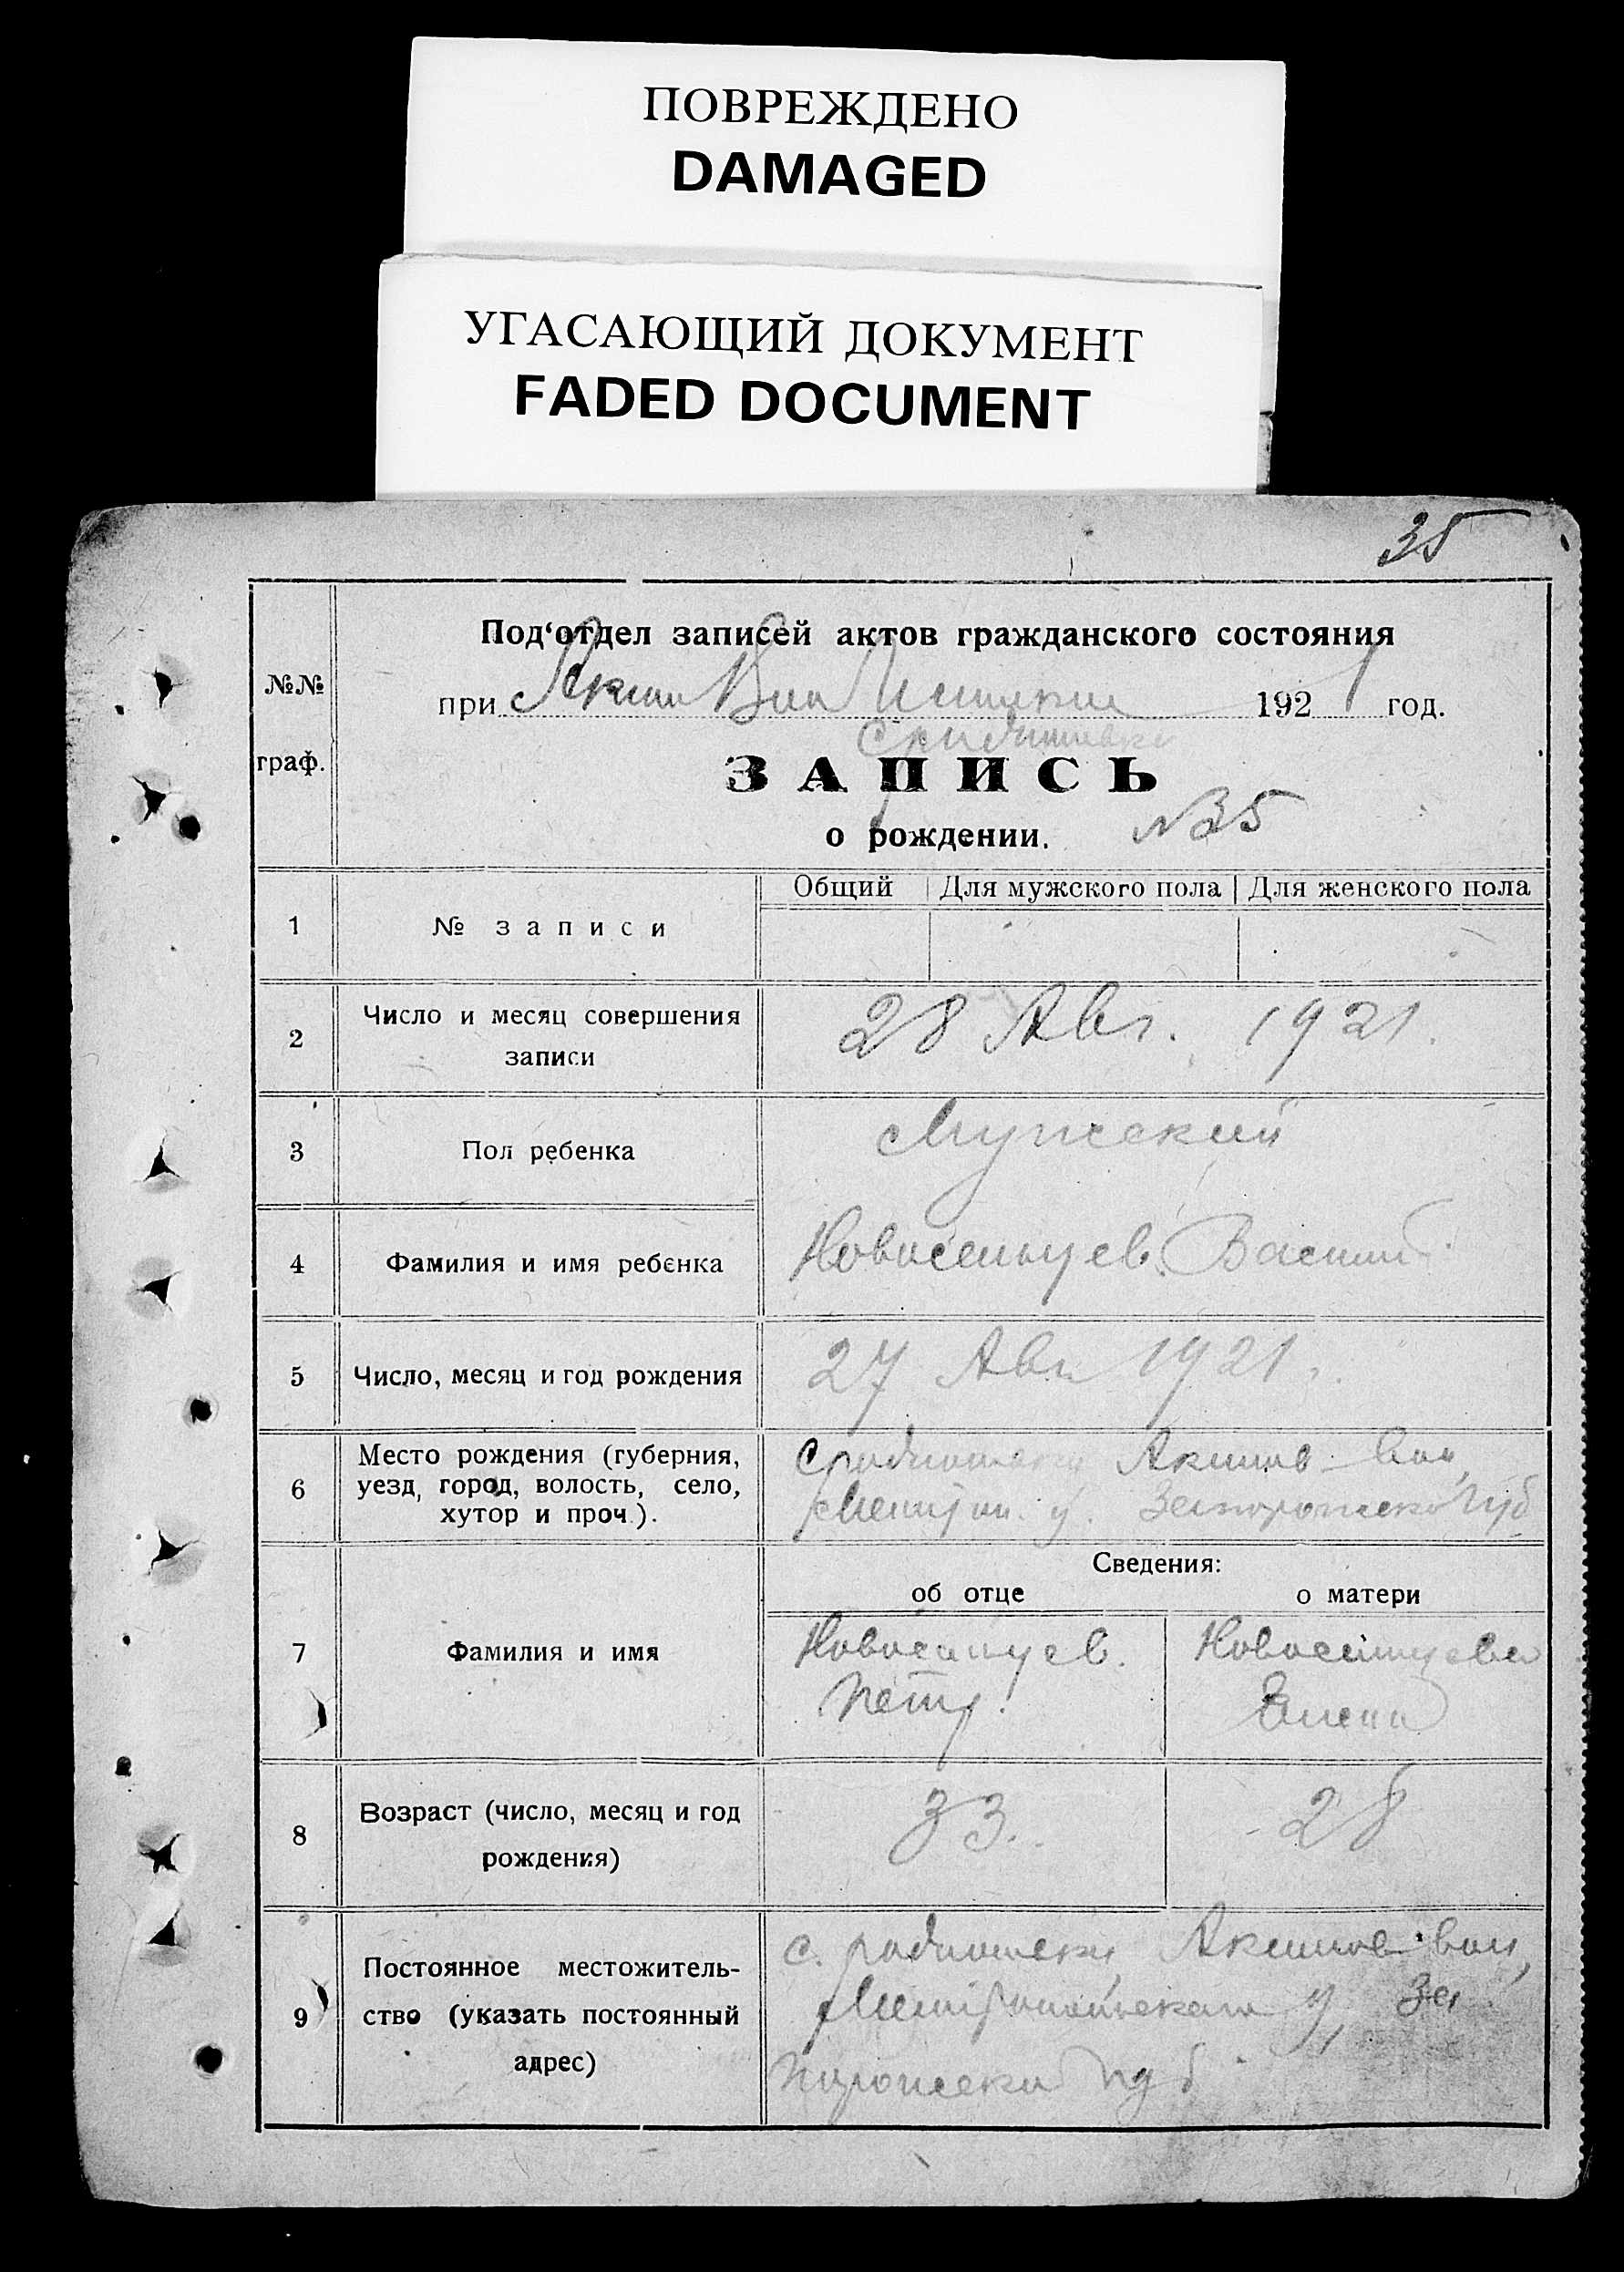 ПОВРЕЖДЕНО
DAMAGED
УГАСАЮЩИЙ ДОКУМЕНТ
FADED DOCUMENT
35
Под‘отдел записей актов гражданского состояния
№№
при 1921 год.
граф.
ЗАПИСЬ
о рождении. №35
Общий Для мужского пола Для женского пола
1 № записи
2 Число и месяц совершения записи 28 Авг. 1921.
3 Пол ребенка Мужский
4 Фамилия и имя ребенка Новосельцев Василий
5 Число, месяц и год рождения 27 Авг 1921.
6 Место рождения (губерния,
уезд, город, волость, село,
хутор и проч.).
Акимов вол,
у. губ
Сведения:
об отце о матери
7 Фамилия и имя
Новосельцев. Новосельцева
Петр. Елена
8 Возраст (число, месяц и год
рождения)
33. 28
9 Постоянное местожитель-
ство (указать постоянный
адрес)
с. Акимов вол,
у, За
губ